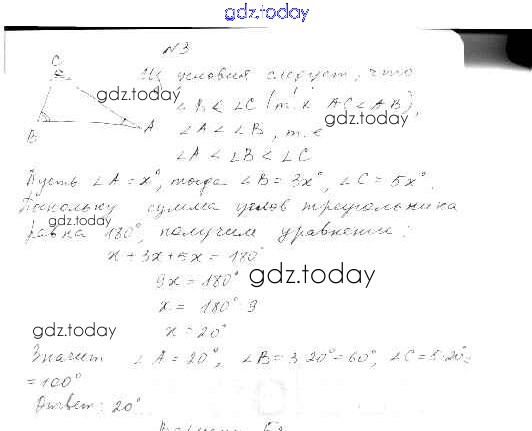 gdz.today
№3
C
Из условия следует, что
gdz.today
∠B < ∠C (т.к AC < AB),
gdz.today
B
A
∠A < ∠B, т.е
∠A < ∠B < ∠C
Пусть ∠A = x°, тогда ∠B = 3x°, ∠C = 5x°.
Поскольку сумма углов треугольника
gdz.today
равна 180°, получим уравнение:
x + 3x + 5x = 180°
9x = 180°
gdz.today
x = 180° 9
gdz.today
x = 20°
Значит ∠A = 20°, ∠B = 3·20° = 60°, ∠C = 5·20°=
= 100°
Ответ: 20°